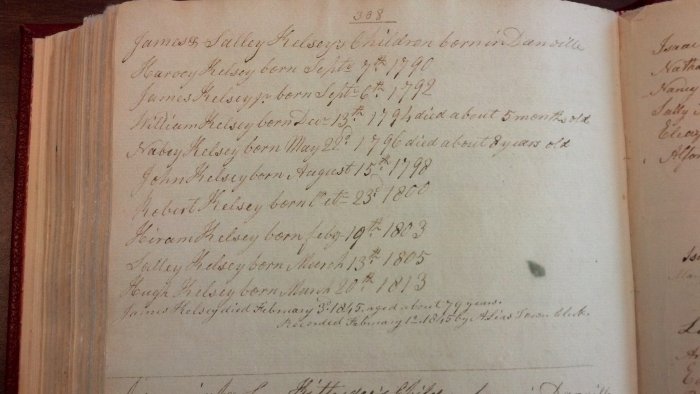 308
James & Salley Kelsey's Children born in Danville
Harvey Kelsey born Septr 7th 1790
James Kelsey Jr born Septr 6th 1792
William Kelsey born Decr 13th 1794 died about 5 months old
Nabey Kelsey born May 22d 1796 died about 8 years old
John Kelsey born August 15th 1798
Robert Kelsey born Octr 23d 1800
Hiram Kelsey born feby 19th 1803
Salley Kelsey born March 13th 1805
Hugh Kelsey born March 20th 1813
James Kelsey died February 3d 1845. aged about 79 years.
Recorded February 12 1845 by Town Clerk.
Children born in Danville
Isaac
Nathan
Nancy
Sally